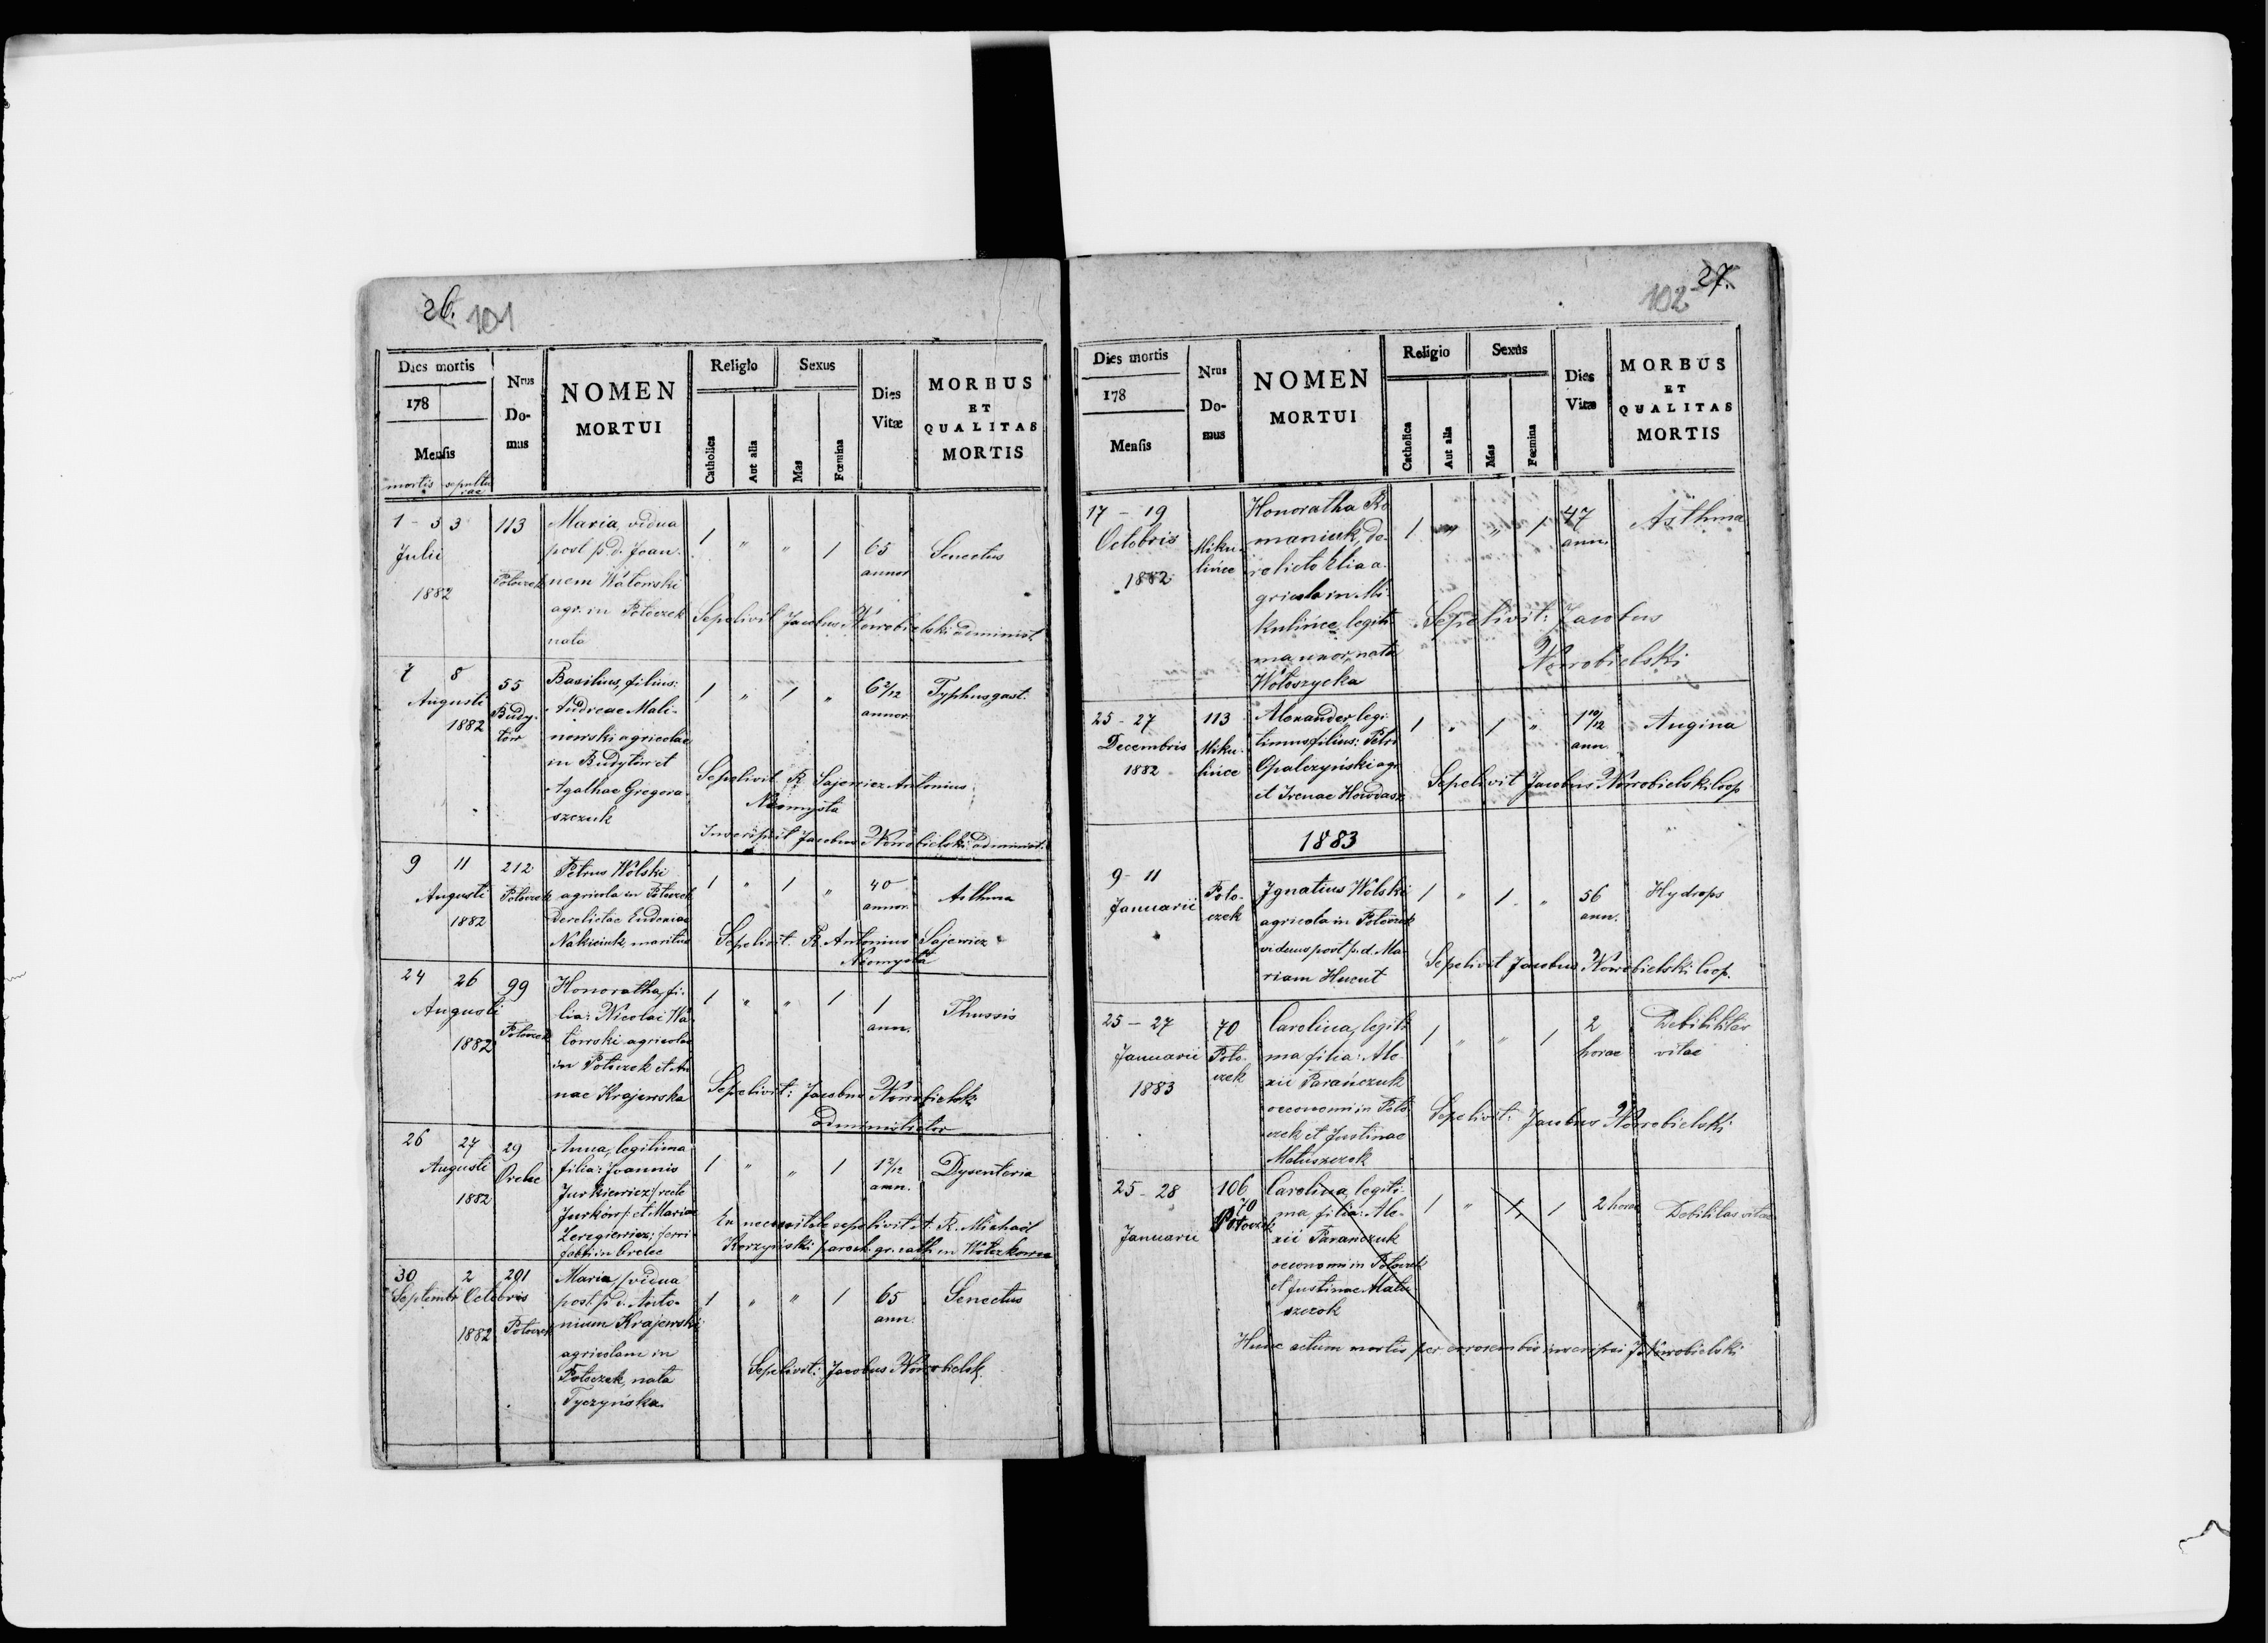 26. 101
Dies mortis
178
Mensis
mortis sepulturae
Nrus Domus
NOMEN
MORTUI
Religio
Catholica
Aut alia
Sexus
Mas
Fœmina
Dies
Vitæ
MORBUS
ET
QUALITAS
MORTIS
1 - 3 3
Julii
1882
113
Potoczek
Maria, vidua
post p. d. Joan-
nem Watowski
agr. in Potoczek
nata
1 " " 1
65
annor
Senectus
Sepelivit Jacobus Worobielski administ.
7 8
Augusti
1882
55
Budy-
łów
Basilius, filius:
Andreae Mali-
nowski agricolae
in Budyłów et
Agathae Gregora-
szczuk
1 " 1 "
6 2/12
annor
Typhus gast.
Sepelivit R. Sajewicz Antonius
Neomysta
Inscripsit Jacobus Worobielski administ.
9 11
Augusti
1882
212
Potoczek
Petrus Wolski
agricola in Potoczek
derelictae Eudoniae
Nakieiuk maritus
1 " 1 "
40
annor.
Asthma
Sepelivit R. Antonius Sajewicz
Neomysta
24 26
Augusti
1882
99
Potoczek
Honoratha, fi-
lia: Nicolai Wa-
towski agricolae
in Potoczek et An-
nae Krajewska
1 " " 1
1
ann.
Thussis
Sepelivit: Jacobus Worobielski
administrator
26 27
Augusti
1882
29
Orelec
Anna, legitima
filia: Joannis
Jurkiewicz / recte
Jurków / et Mariae
ferri-
fabri in Orelec
1 " " 1
1 2/12
ann.
Dysenteria
Ex necessitate sepelivit A. R. Michael
Korzyński paroch. gr. cath. in Wołczkowce
30 2
Septembr Octobris
1882
201
Potoczek
Maria, vidua
post p. d. Anto-
nium Krajewski
agricolam in
Potoczek, nata
Tyczyńska
1 " " 1
65
ann.
Senectus
Sepelivit: Jacobus Worobielski
102 27.
Dies mortis
178
Mensis
Nrus Domus
NOMEN
MORTUI
Religio
Catholica
Aut alia
Sexus
Mas
Fœmina
Dies
Vitæ
MORBUS
ET
QUALITAS
MORTIS
17 - 19
Octobris
1882
Miku-
lińce
Honoratha Ro
maniuk, de-
relicto Elia a-
gricola in Mi-
kulińce legiti
ma uxor, nata
Wołoszycka
1 " " 1
47
ann.
Asthma
Sepelivit: Jacobus
Worobielski
25 - 27
Decembris
1882
113
Miku-
lińce
Alexander legi-
timus filius: Petri
Opalczyński agr.
et Irenae Howdasz
1 " 1 "
1 10/12
ann.
Angina
Sepelivit Jacobus Worobielski Coop
1883
9 - 11
Januarii
Poto-
czek
Ignatius Wolski
agricola in Potoczek
viduus post p. d. Ma-
riam Hucut
1 " 1 "
56
ann.
Hydrops
Sepelivit Jacobus Worobielski Coop.
25 - 27
Januarii
1883
70
Poto-
czek
Carolina, legiti
ma filia: Ale-
xii Parańczuk
oeconomi in Poto-
czek et Justinae
Matuszczak
1 " " 1
2
horae
Debilitas
vitae
Sepelivit: Jacobus Worobielski
25 - 28
Januarii
106
70
Potoczek
Carolina, legiti-
ma filia: Ale-
xii Parańczuk
oeconomi in Potoczek
et Justinae Matu-
szczak
1 " 1 1
2 horae
Debilitas vitae
Hunc actum mortis per errorem bis inscripsi J. Worobielski